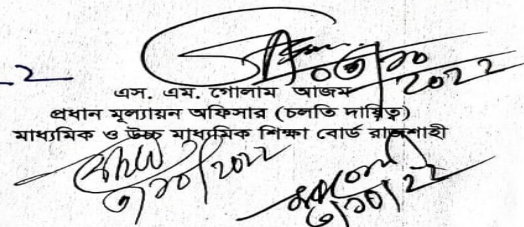 ০৩/১০
২০২২
এস. এম. গোলাম আজম
প্রধান মূল্যায়ন অফিসার (চলতি দায়িত্ব)
মাধ্যমিক ও উচ্চ মাধ্যমিক শিক্ষা বোর্ড রাজশাহী
৩/১০/২০২২
৩/১০/২২